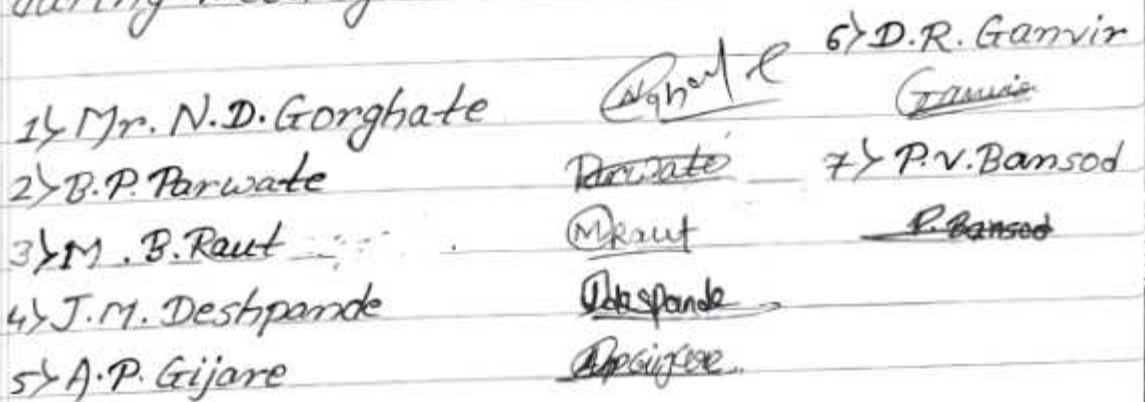 during
1) Mr. N.D. Gorghate
2) B.P. Parwate Parwate
3) M. B. Raut MRaut
4) J.M. Deshpande Jdespande
5) A.P. Gijare
6) D.R. Ganvir
Ganvir
7) P.V. Bansod
P. Bansod